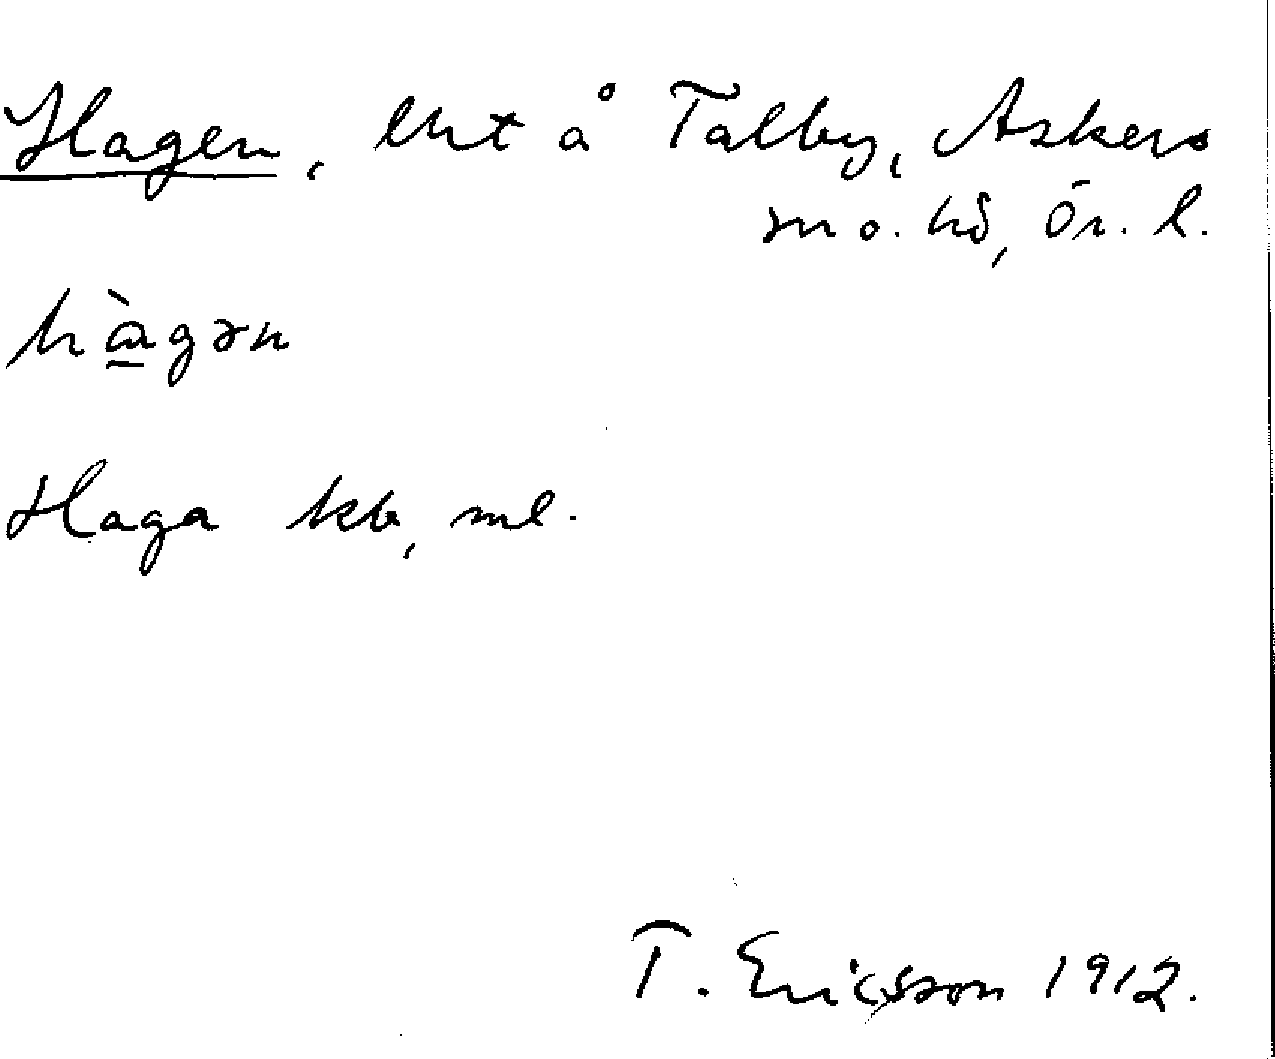 Hagen, lht å Talby, Askers
sn o. hd, Ör. l.
hàgən
Haga kb, ml.
T. Ericsson 1912.